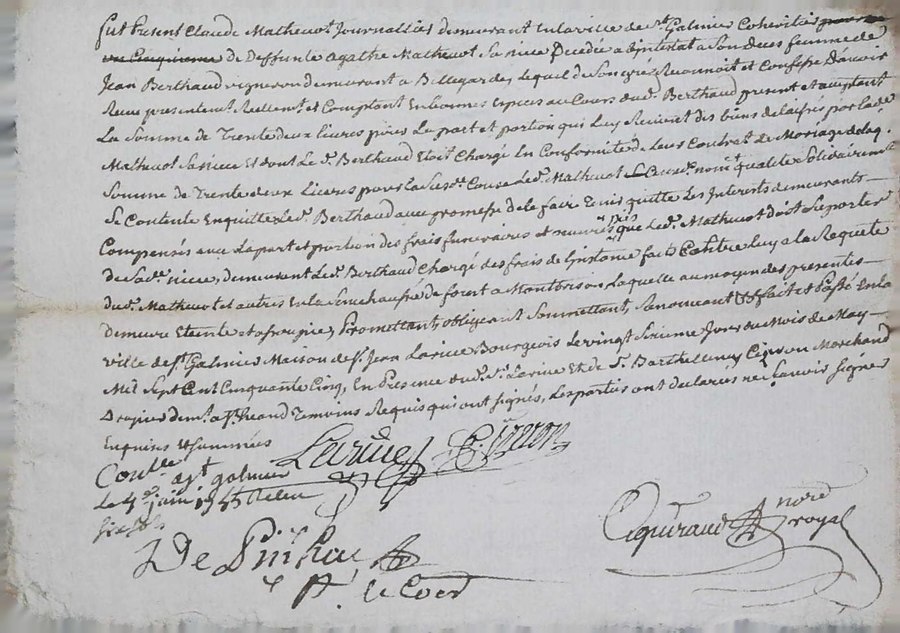 fut Present Claude Matheuot Journallies demeurant Enlaville de st. Galmier Coheritier
de Deffunte Agathe Matheuot Sa niece Decedée abintestat a Son deces femme de
Jean Berthaud vigneron demeurant a Bellegardes, lequel de Son gré Reconnoit et Confesse D'avoir
Receu presentemt. Reellemt. et Comptant En bonnes Especes au Cours dud. Berthaud present et acceptant
La Somme de Trente deux livres pour La part et portion qui Luy Revient des biens delaissés par lade.
Matheuot Sa niece Et dont Le d. Berthaud Etoit Chargé En Conformité de Leur Contrat de Mariage de laq.
Somme de Trente deux Livres pour la Susde. Cause Led. Matheuot aud. nom et qualité Solidairemt.
Se Contente Enquitte Led. Berthaud avec promesse de le faire Tenir quitte Les Interests demeurants
Compensés avec La part et portion des frais funeraires et que Led. Matheuot doit Suporter
de Sade. niece, demeurant Led. Berthaud Chargé des frais de Linstance faits Contre Luy a la Requete
dud. Matheuot et autres En la Senechaussée de forest a Montbrison Laquelle au moyen des presentes
demeure Eteinte et assoupie, Promettant, obligeant, Soumettant, Renonceant &a fait et Passé En la
ville de st. Galmier Maison de sr. Jean Larive Bourgeois Le vingt Sixieme Jour du Mois de May
Mil Sept Cent Cinquante Cinq, En Presence dud. Sr. Larive Et de Sr. Barthelemy Marchand
Drapier demt. a st. heand Temoins Requis qui ont Signés, Les parties ont declarées ne Scavoir Signer
Enquises Et Sommées
Larive
Conlle. a st galmier
Le 4e juin 1755 Receu
six s.
nore royal